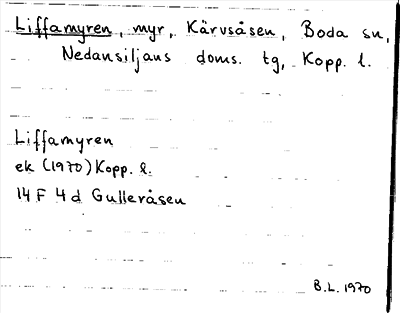 Liffamyren, myr, Kärvsåsen, Boda sn,
Nedansiljans doms. tg, Kopp. l.
Liffamyren
ek (1970) Kopp. l.
14 F 4 d Gulleråsen
B.L. 1970